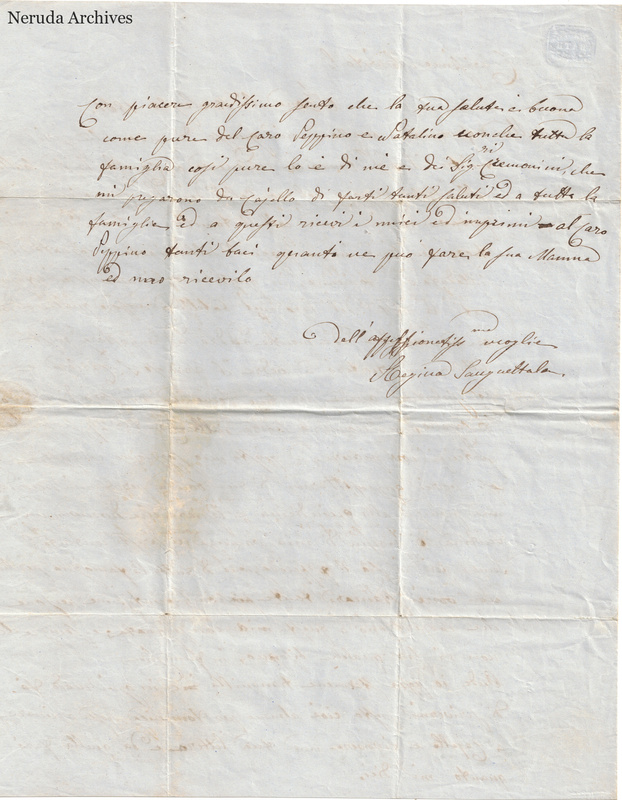 Neruda Archives
Con piacere grandissimo sento che la tua salute è buona
come pure del Caro Peppino e Natalino nonche tutta la
famiglia cosi pure lo è di me e dei Sig.ri Cremonini, che
mi pregarono da Cajello di farti tanti saluti ed a tutta la
famiglia ed a questi ricevi i miei ed imprimi al Caro
Peppino tanti baci quanto ne può fare la sua Mamma
ed ricevilo
Dell'affezionatiss.ma moglie
Regina